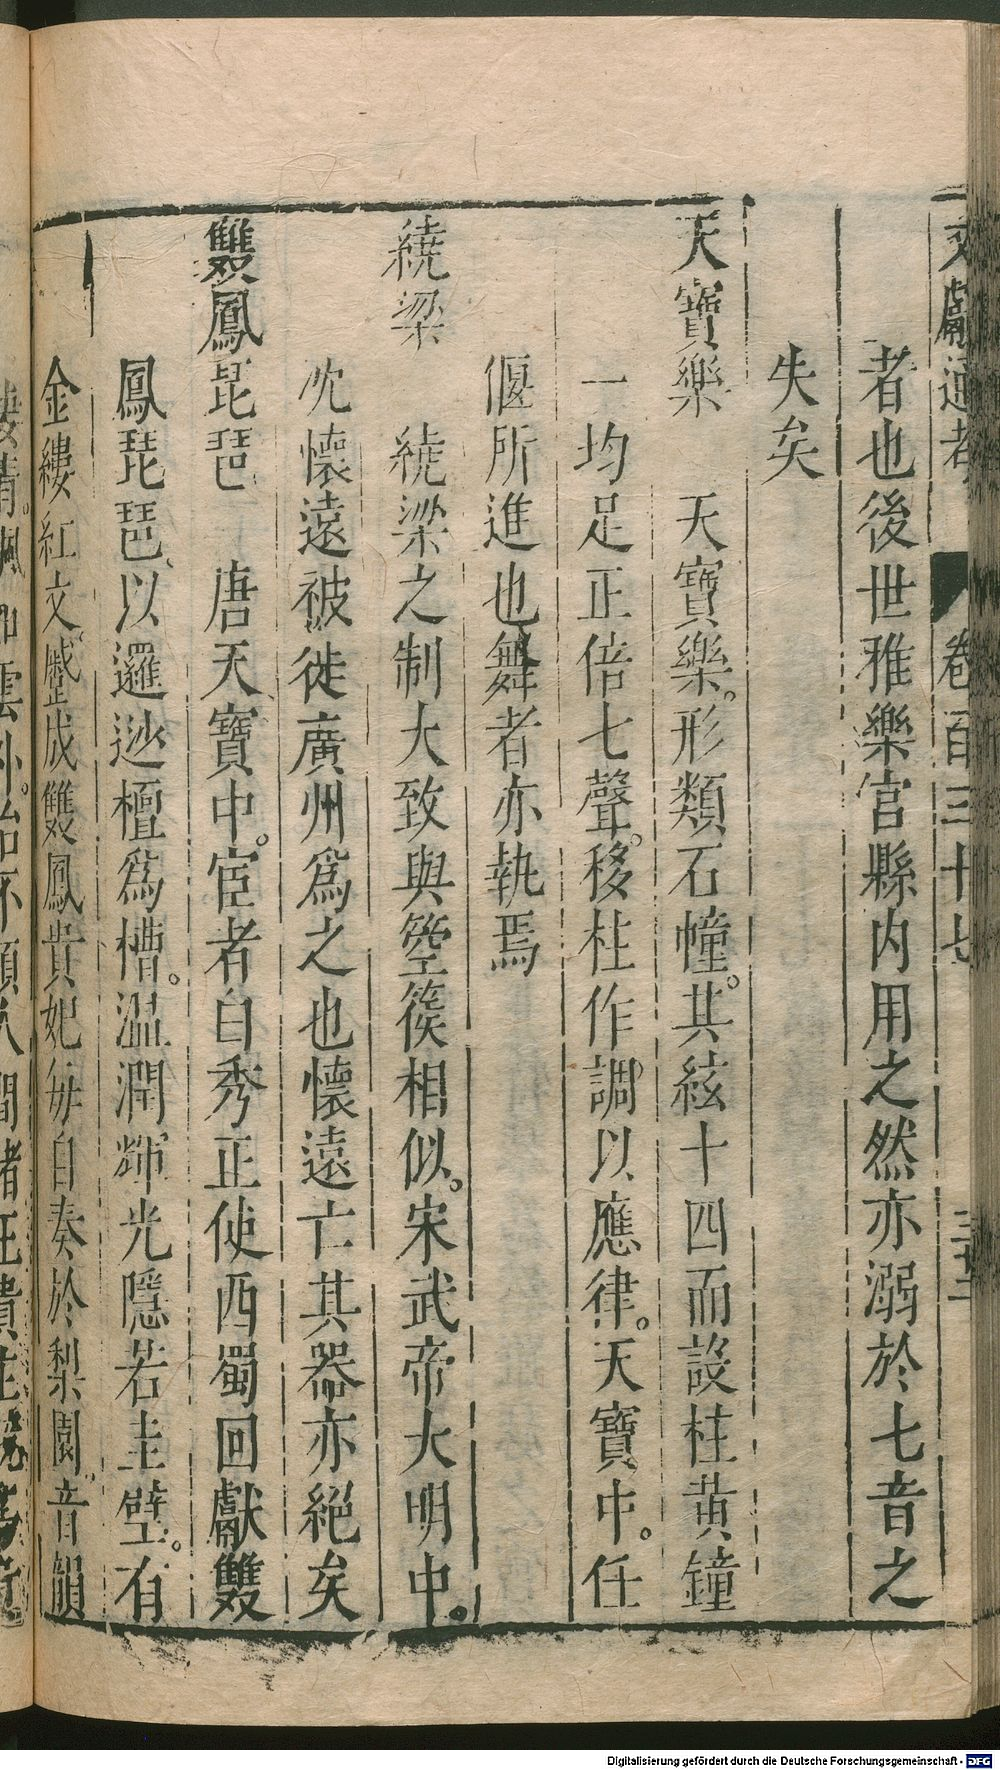 文獻通考 卷百三十七 三十二
者也後世雅樂官縣内用之然亦溺於七音之
失矣
天寶樂 天寶樂。形類石幢。其絃十四而設柱黄鐘
一均足正倍七聲。移柱作調以應律。天寶中。任
偃所進也舞者亦執焉
繞梁 繞梁之制大致與箜篌相似。宋武帝大明中。
沈懷遠被徙廣州爲之也懷遠亡其器亦絕矣
雙鳳琵琶 唐天寶中。宦者白秀正使西蜀回獻雙
鳳琵琶、以邏逤檀爲槽。温潤輝光隱若圭璧。有
金縷紅文。蹙成雙鳳貴妃每自奏於梨園。音韻
Digitalisierung gefördert durch die Deutsche Forschungsgemeinschaft - DFG